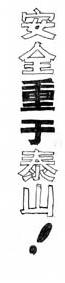 安全重于泰山！